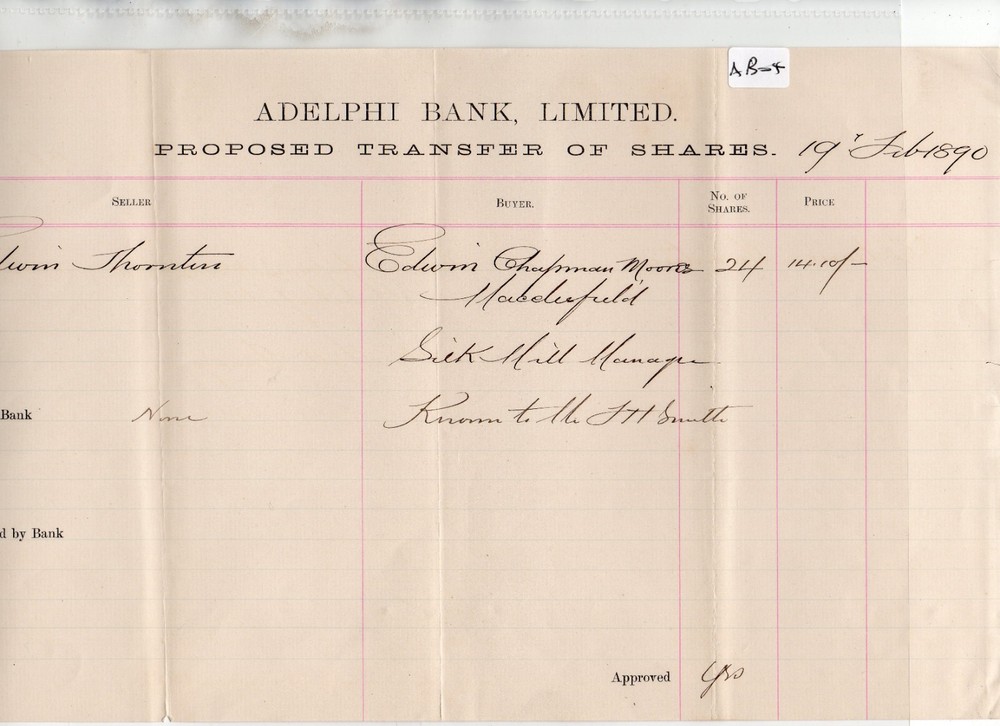 AB-4
ADELPHI BANK, LIMITED.
PROPOSED TRANSFER OF SHARES. 19 Feb 1890
SELLER BUYER. NO. OF SHARES. PRICE
dwin Thornton Edwin Chapman Moore 24 14.10/-
Macclesfield
Silk Mill Manager
Bank None Known to Mr J H Smith
d by Bank
Approved Yes